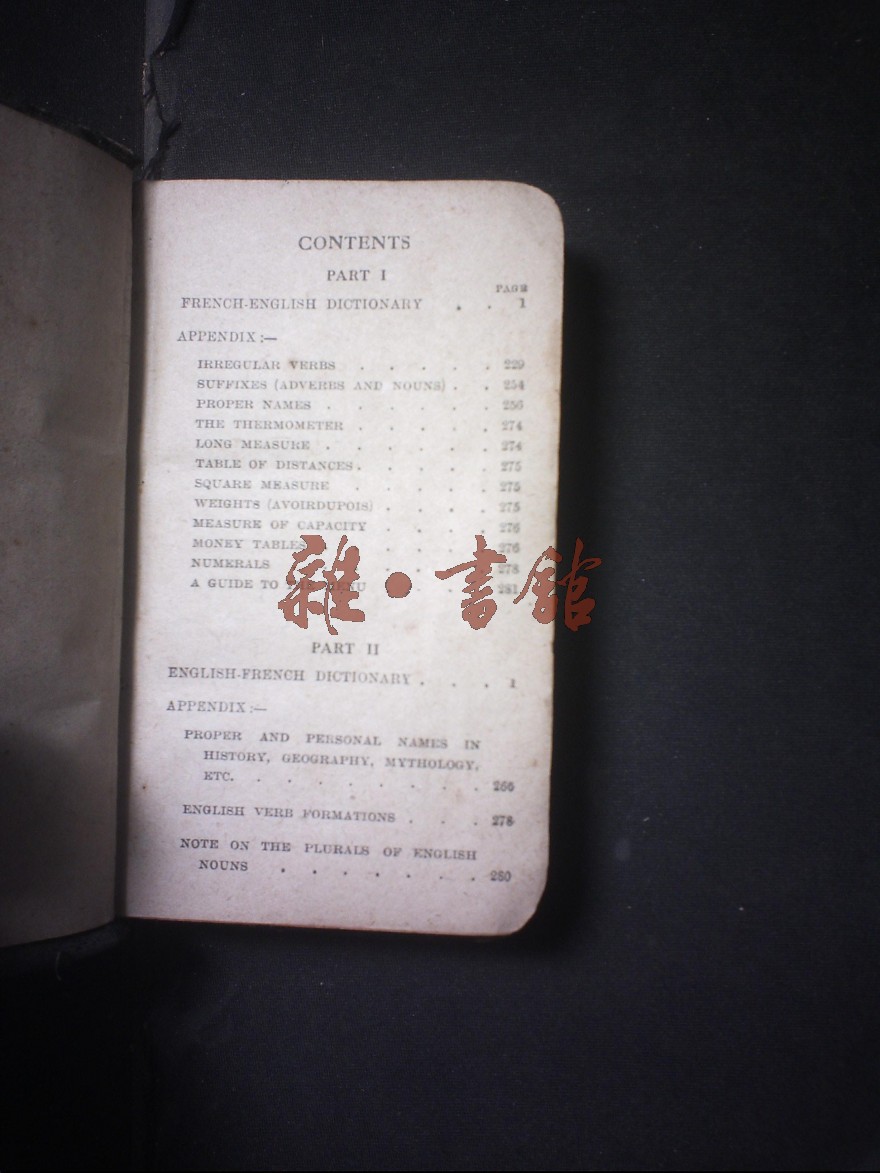 CONTENTS
PART I
PAGE
FRENCH-ENGLISH DICTIONARY . . 1
APPENDIX :—
IRREGULAR VERBS . . . . . 229
SUFFIXES (ADVERBS AND NOUNS) . . 254
PROPER NAMES . . . . . . 256
THE THERMOMETER . . . . . 274
LONG MEASURE . . . . . . 274
TABLE OF DISTANCES . . . . . 275
SQUARE MEASURE . . . . . 275
WEIGHTS (AVOIRDUPOIS) . . . . 275
MEASURE OF CAPACITY . . . . 276
MONEY TABLES . . . . 276
NUMERALS . . . . 278
A GUIDE TO THE MENU . . . 281
雜·書館
PART II
ENGLISH-FRENCH DICTIONARY . . . 1
APPENDIX :—
PROPER AND PERSONAL NAMES IN
HISTORY, GEOGRAPHY, MYTHOLOGY,
ETC. . . . . . . . . 266
ENGLISH VERB FORMATIONS . . . 278
NOTE ON THE PLURALS OF ENGLISH
NOUNS . . . . . . . 280